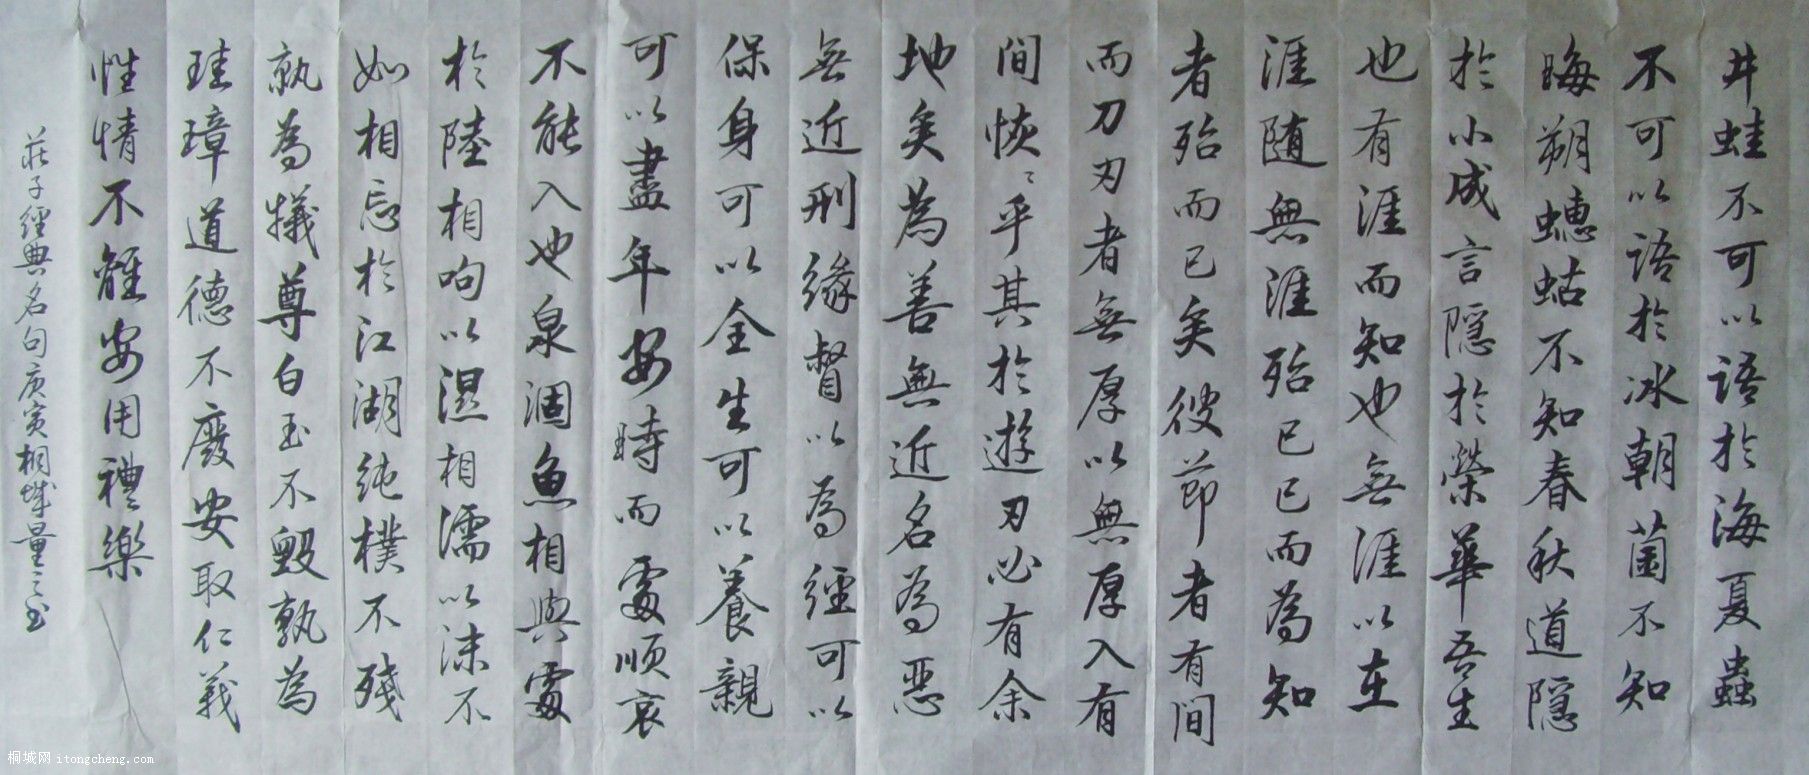 井蛙不可以語於海夏蟲
不可以語於冰朝菌不知
晦朔蟪蛄不知春秋道隱
於小成言隱於榮華吾生
也有涯而知也無涯以有
涯随無涯殆已已而為知
者殆而已矣彼節者有間
而刀刃者無厚以無厚入有
間恢〻乎其於遊刃必有余
地矣為善無近名為惡
無近刑緣督以為經可以
保身可以全生可以養親
可以盡年安時而處順哀
不能入也泉涸魚相與處
於陸相呴以濕相濡以沫不
如相忘於江湖純樸不殘
孰為犧尊白玉不毀孰為
珪璋道德不廢安取仁義
性情不離安用禮樂
莊子經典名句庚寅桐城量之書
桐城网 itongcheng.com